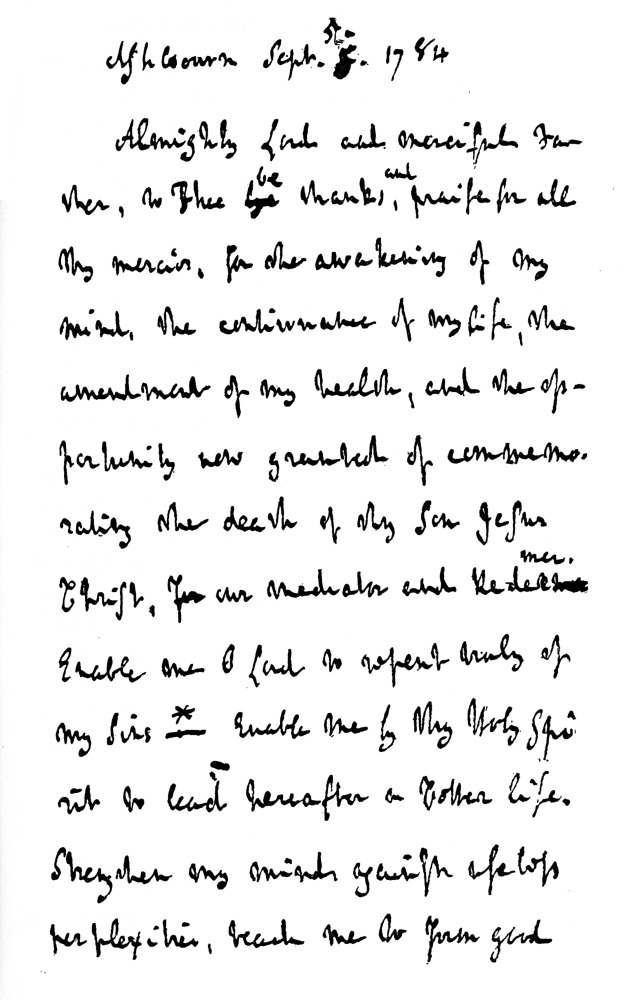 Ashbourn Sept. 5. 1784
Almighty Lord and merciful Fa-
ther, to Thee be thanks, and praise for all
thy mercies, for the awakening of my
mind, the continuance of my life, the
amendment of my health, and the op-
portunity now granted of commemo-
rating the death of thy Son Jesus
Christ, our Mediator and Redeemer.
Enable me O Lord to repent truly of
my sins * Enable me by thy Holy Spi-
rit to lead hereafter a better life.
Strengthen my mind against useless
perplexities, teach me to form good